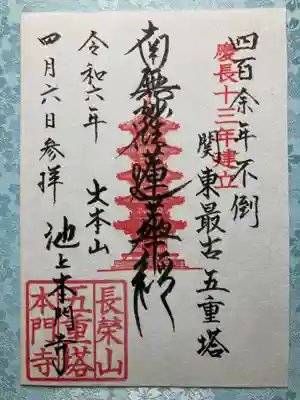 四百余年不倒
慶長十三年建立
関東最古五重塔
南無妙法蓮華経
大本山
池上本門寺
令和六年
四月六日参拝
長榮山
五重塔
本門寺